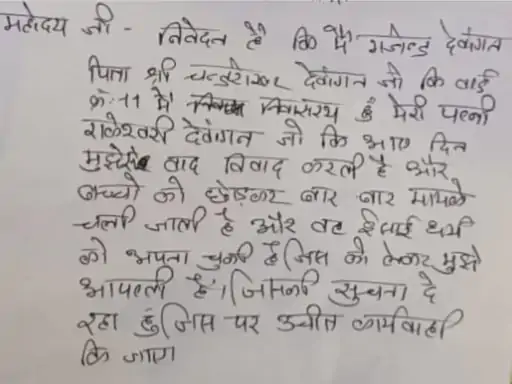 महोदय जी - निवेदन है कि मैं गजेन्द्र देवांगन
पिता श्री चन्द्रशेखर देवांगन जो कि वार्ड
क्र.-11 में निवासरथ हुं मेरी पत्नी
राजेश्वरी देवांगन जो कि आए दिन
मुझसे वाद विवाद करती है और
बच्चो को छोड़कर बार बार मायके
चली जाती है और वह ईसाई धर्म
को अपना चुकी है जिस को लेकर मुझे
आपत्ती है। जिसकी सुचना दे
रहा हुं जिस पर उचीत कार्यवाही
कि जाए